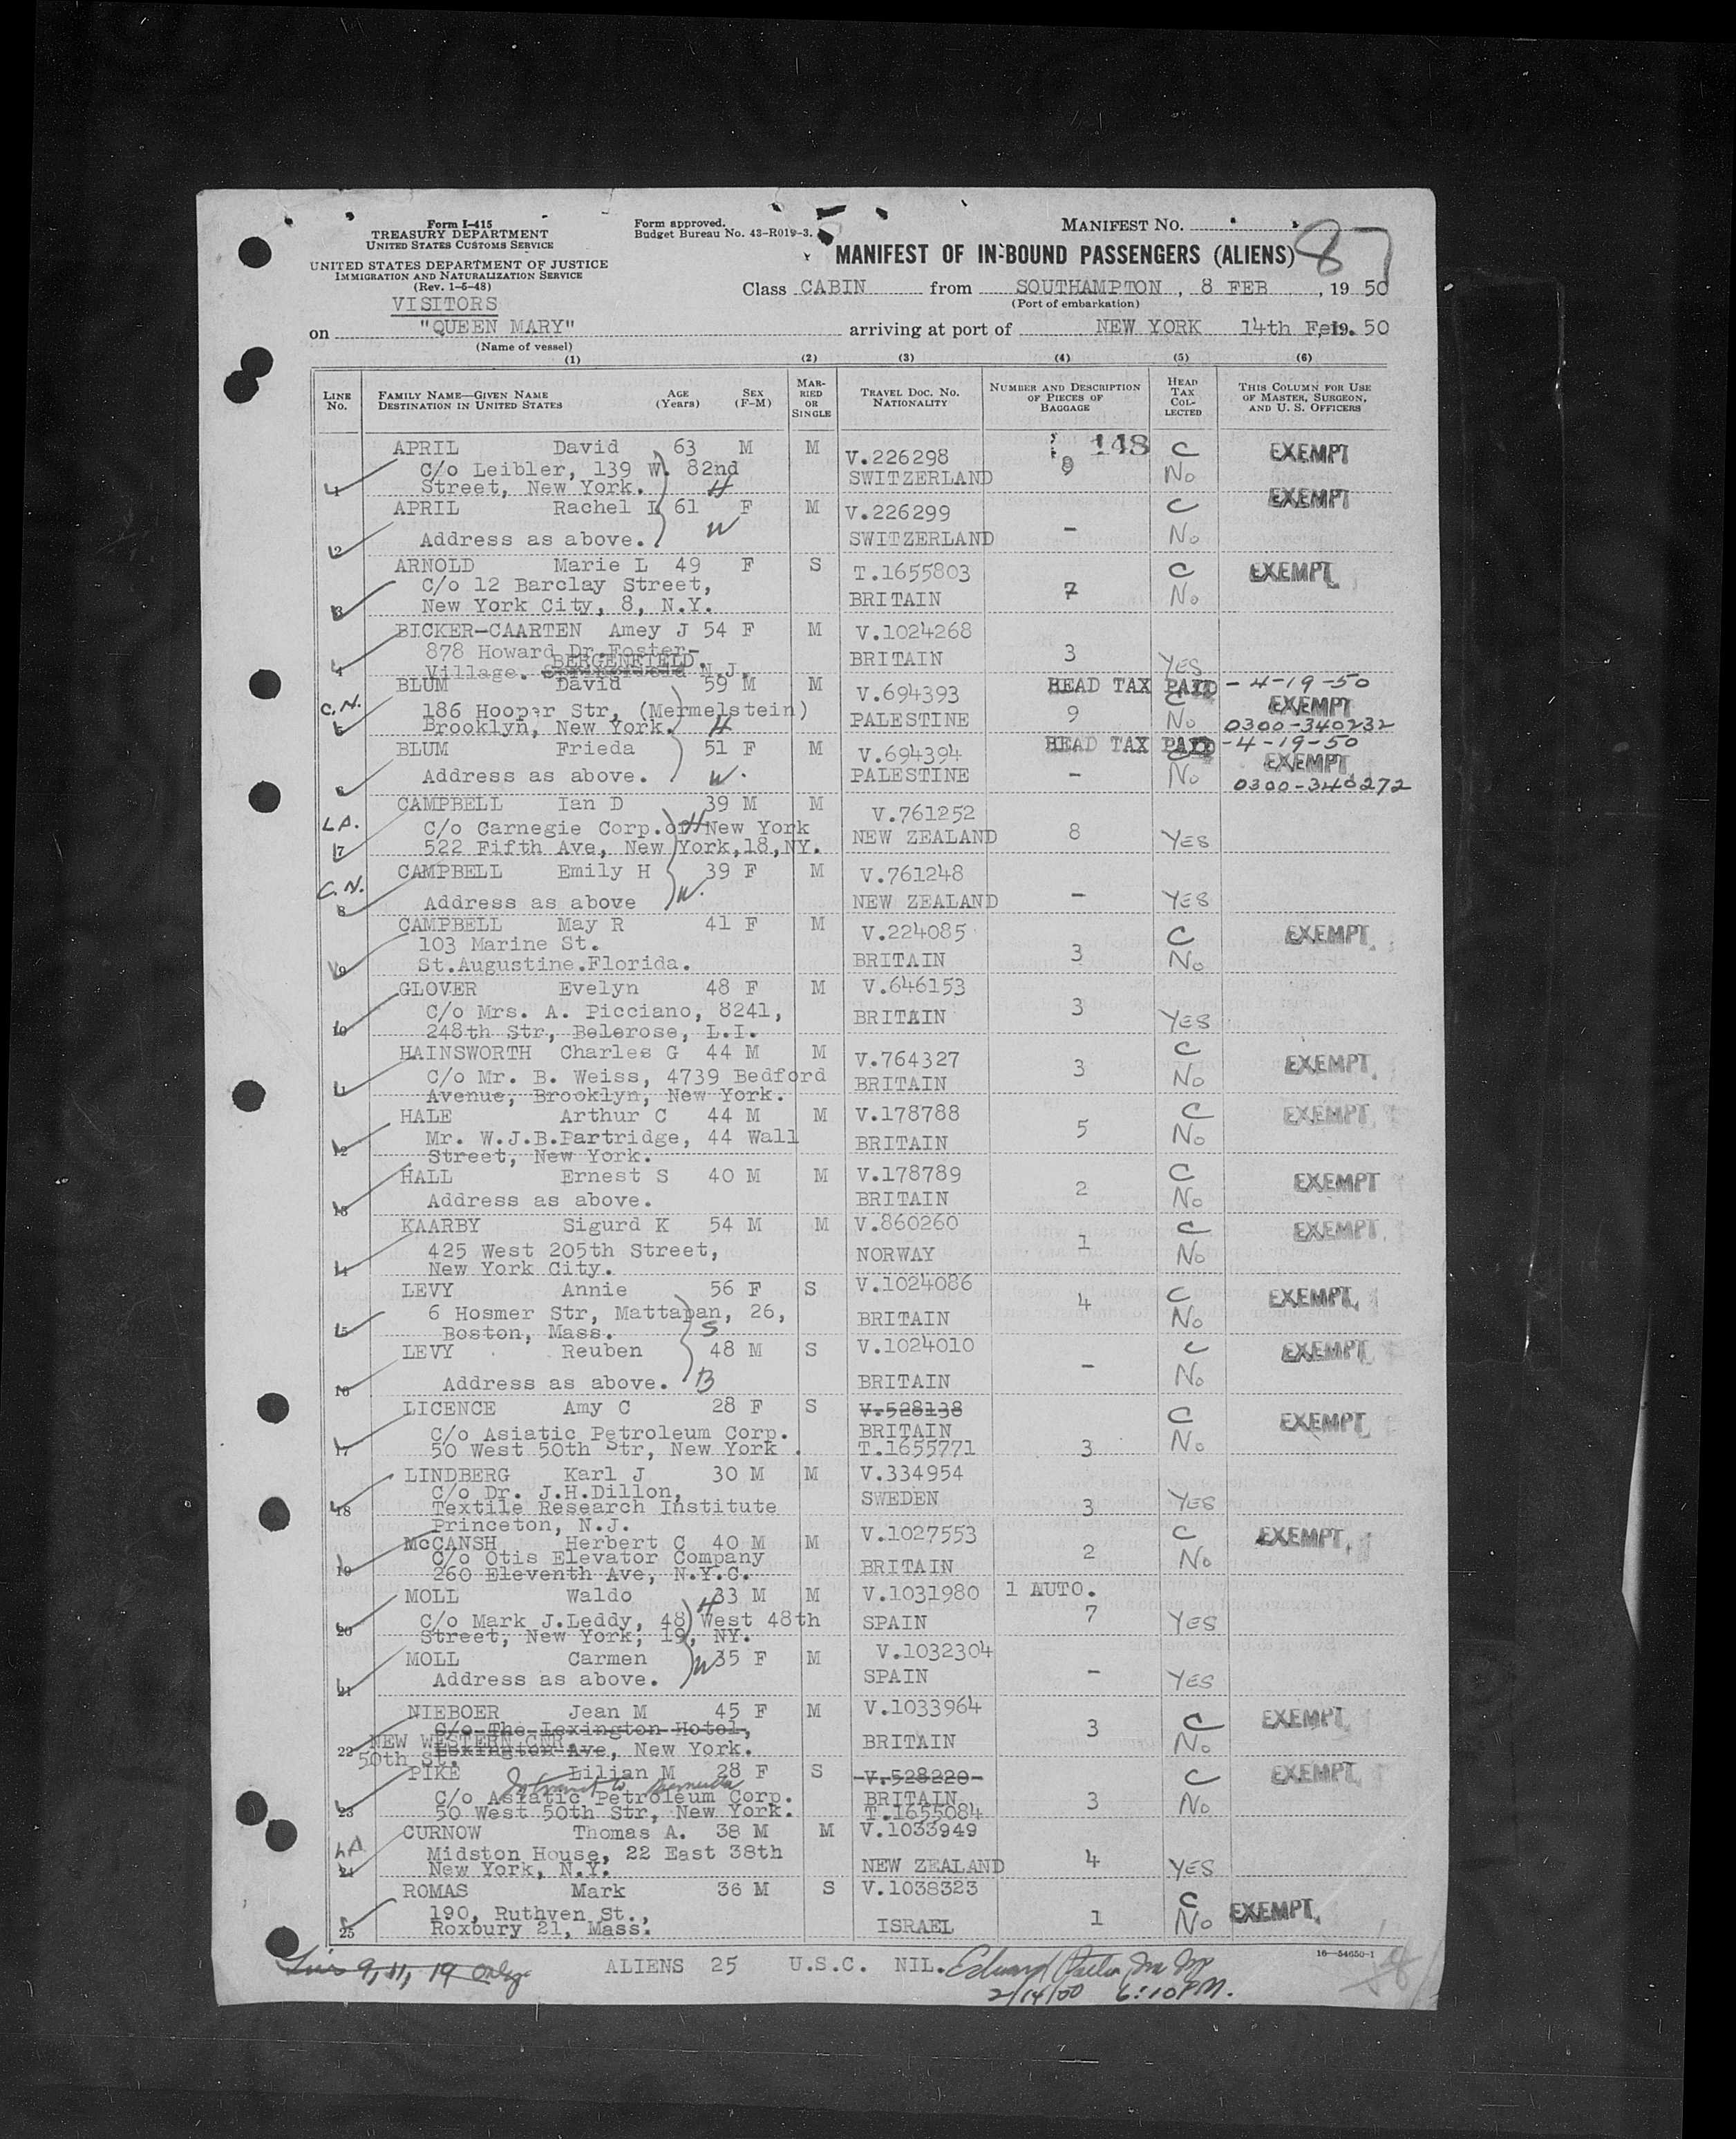 Form I-415
TREASURY DEPARTMENT
UNITED STATES CUSTOMS SERVICE
Form approved.
Budget Bureau No. 43-R019-3.
MANIFEST NO.
87
MANIFEST OF IN-BOUND PASSENGERS (ALIENS)
UNITED STATES DEPARTMENT OF JUSTICE
IMMIGRATION AND NATURALIZATION SERVICE
(Rev. 1-5-48)
VISITORS
Class CABIN from SOUTHAMPTON, 8 FEB, 19 50
(Port of embarkation)
on "QUEEN MARY" arriving at port of NEW YORK 14th Feb. 19 50
(Name of vessel)
(1) (2) (3) (4) (5) (6)
LINE No. FAMILY NAME—GIVEN NAME DESTINATION IN UNITED STATES AGE (Years) SEX (F-M) MARRIED OR SINGLE TRAVEL DOC. NO. NATIONALITY NUMBER AND DESCRIPTION OF PIECES OF BAGGAGE HEAD TAX COLLECTED THIS COLUMN FOR USE OF MASTER, SURGEON, AND U. S. OFFICERS
APRIL David 63 M M V.226298 148 C EXEMPT
C/o Leibler, 139 W. 82nd 9 No
1 Street, New York. H SWITZERLAND
APRIL Rachel L 61 F M V.226299 C EXEMPT
W
2 Address as above. SWITZERLAND - No
ARNOLD Marie L 49 F S T.1655803 C EXEMPT
C/o 12 Barclay Street, BRITAIN 7 No
3 New York City, 8, N.Y.
BICKER-CAARTEN Amey J 54 F M V.1024268
878 Howard Dr.Foster- BRITAIN 3
BERGENFIELD.
4 Village. N.J. YES
BLUM David 59 M M V.694393 HEAD TAX PAID - 4-19-50
C.N. 186 Hooper Str, (Mermelstein) C EXEMPT
5 Brooklyn, New York. H PALESTINE 9 No 0300-340232
BLUM Frieda 51 F M V.694394 HEAD TAX PAID -4-19-50
C EXEMPT
6 Address as above. W. PALESTINE - No 0300-340272
CAMPBELL Ian D 39 M M V.761252
L.A. C/o Carnegie Corp.of H New York NEW ZEALAND 8 YES
7 522 Fifth Ave, New York,18,NY.
C.N. CAMPBELL Emily H 39 F M V.761248
8 Address as above W. NEW ZEALAND - YES
CAMPBELL May R 41 F M V.224085 C EXEMPT
103 Marine St. BRITAIN 3 No
9 St.Augustine.Florida.
GLOVER Evelyn 48 F M V.646153
C/o Mrs. A. Picciano, 8241, BRITAIN 3 YES
10 248th Str, Belerose, L.I.
HAINSWORTH Charles G 44 M M V.764327 C EXEMPT
C/o Mr. B. Weiss, 4739 Bedford BRITAIN 3 No
11 Avenue, Brooklyn, New York.
HALE Arthur C 44 M M V.178788 C EXEMPT
Mr. W.J.B.Partridge, 44 Wall BRITAIN 5 No
12 Street, New York.
HALL Ernest S 40 M M V.178789 C EXEMPT
13 Address as above. BRITAIN 2 No
KAARBY Sigurd K 54 M M V.860260 C EXEMPT
425 West 205th Street, NORWAY 1 No
14 New York City.
LEVY Annie 56 F S V.1024086 C EXEMPT
6 Hosmer Str, Mattapan, 26, BRITAIN 4 No
15 Boston, Mass. S
LEVY Reuben 48 M S V.1024010 C EXEMPT
16 Address as above. B BRITAIN - No
LICENCE Amy C 28 F S V.528138 C EXEMPT
C/o Asiatic Petroleum Corp. BRITAIN No
17 50 West 50th Str, New York. T.1655771 3
LINDBERG Karl J 30 M M V.334954
C/o Dr. J.H.Dillon, SWEDEN
18 Textile Research Institute 3 YES
Princeton, N.J.
McCANSH Herbert C 40 M M V.1027553 C EXEMPT
C/o Otis Elevator Company BRITAIN 2 No
19 260 Eleventh Ave, N.Y.C.
MOLL Waldo H 33 M M V.1031980 1 AUTO.
C/o Mark J.Leddy, 48 West 48th SPAIN 7 YES
20 Street, New York, 19, NY.
MOLL Carmen W 35 F M V.1032304
21 Address as above. SPAIN - YES
NIEBOER Jean M 45 F M V.1033964 C EXEMPT
C/o The Lexington Hotel, BRITAIN 3 No
NEW WESTERN CNR.
22 Lexington Ave, New York.
50th St.
PIKE Lilian M 28 F S V.528220 C EXEMPT
In transit to Bermuda
C/o Asiatic Petroleum Corp. BRITAIN 3 No
23 50 West 50th Str, New York. T.1655084
CURNOW Thomas A. 38 M M V.1033949
LA Midston House, 22 East 38th NEW ZEALAND 4 YES
24 New York, N.Y.
ROMAS Mark 36 M S V.1038323 C EXEMPT
190, Ruthven St., ISRAEL 1 No
25 Roxbury 21, Mass.
16—54650-1
9, 11, 19 only
ALIENS 25 U.S.C. NIL.
2/14/50 6:10 PM.